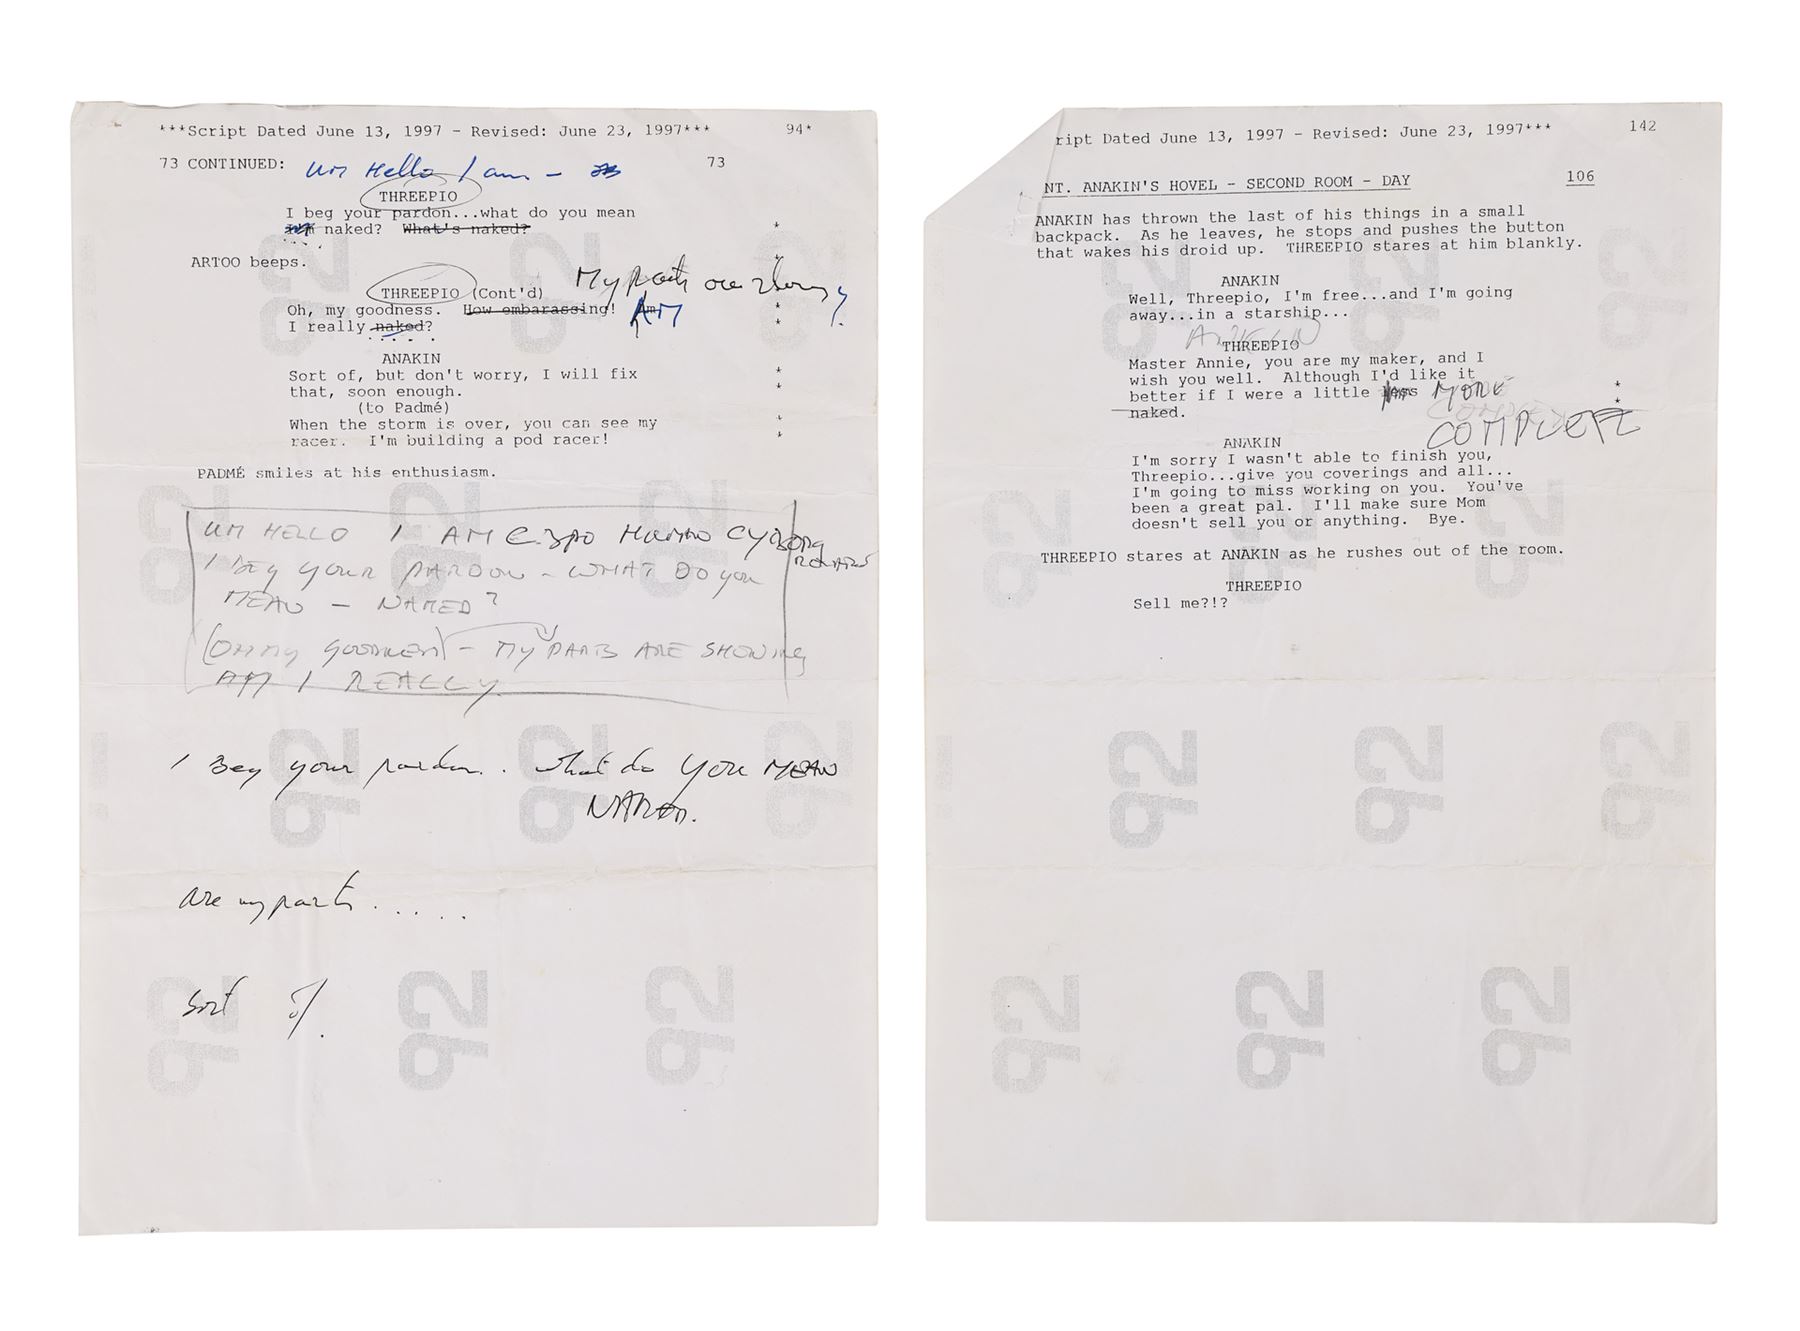 ***Script Dated June 13, 1997 - Revised: June 23, 1997*** 94*
73 CONTINUED: 73
UM Hello I am -
THREEPIO
I beg your pardon...what do you mean
naked? What's naked? *
ARTOO beeps. *
THREEPIO (Cont'd) *
My parts are showing?
Oh, my goodness. How embarassing! AM *
I really naked? *
ANAKIN
Sort of, but don't worry, I will fix *
that, soon enough. *
(to Padmé)
When the storm is over, you can see my *
racer. I'm building a pod racer! *
PADMÉ smiles at his enthusiasm.
UM HELLO I AM C3PO HUMAN CYBORG
I BEG YOUR PARDON - WHAT DO YOU
MEAN - NAKED?
(OH MY GOODNESS) - MY PARTS ARE SHOWING
AM I REALLY
I Beg your pardon.. what do you MEAN
NAKED.
are my parts.....
sort of.
92
ript Dated June 13, 1997 - Revised: June 23, 1997*** 142
NT. ANAKIN'S HOVEL - SECOND ROOM - DAY 106
ANAKIN has thrown the last of his things in a small
backpack. As he leaves, he stops and pushes the button
that wakes his droid up. THREEPIO stares at him blankly.
ANAKIN
Well, Threepio, I'm free...and I'm going
away...in a starship...
ANAKIN
THREEPIO
Master Annie, you are my maker, and I
wish you well. Although I'd like it
better if I were a little less MORE *
naked. *
COMPLETE
ANAKIN
I'm sorry I wasn't able to finish you,
Threepio...give you coverings and all...
I'm going to miss working on you. You've
been a great pal. I'll make sure Mom
doesn't sell you or anything. Bye.
THREEPIO stares at ANAKIN as he rushes out of the room.
THREEPIO
Sell me?!?
92